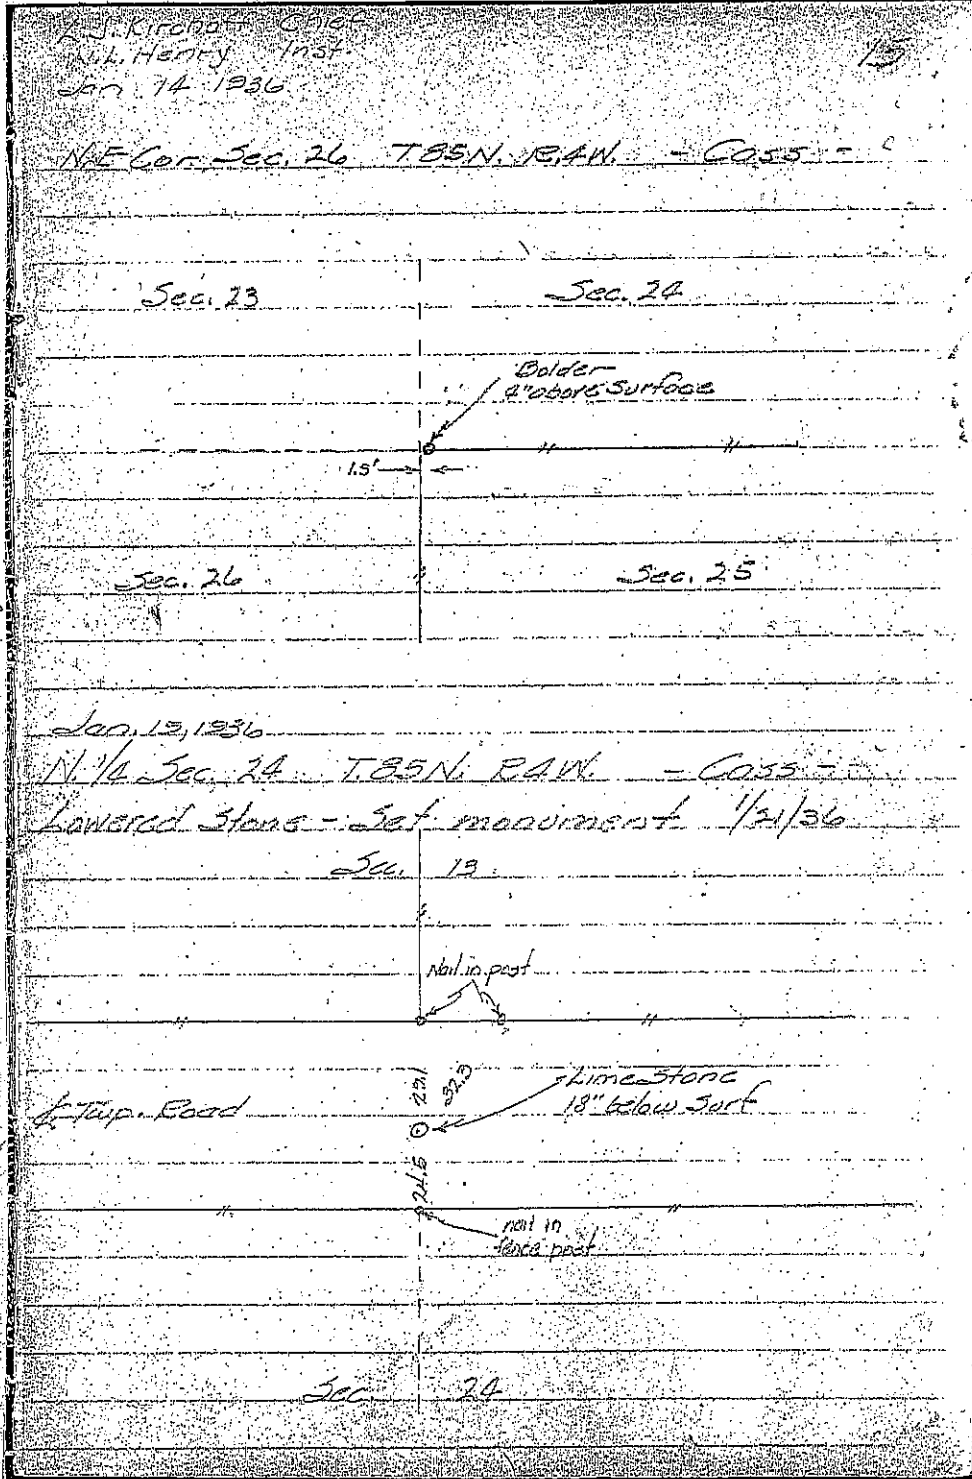 L.J. Kirchoff Chief
N.L. Henry Inst
Jan 14 1936
15
N.E Cor. Sec. 26 T85N. R.4W. - Cass -
Sec. 23
Sec. 24
Bolder
4" above Surface
1.5'
Sec. 26
Sec. 25
Jan. 15, 1936
N. 1/4 Sec. 24 T.85N. R4W. - Cass -
Lowered Stone - Set monument 1/21/36
Sec. 13
Nail in post
23.1
32.3
Lime Stone
18" below Surf
Twp. Road
24.5
nail in
fence post
Sec. 24